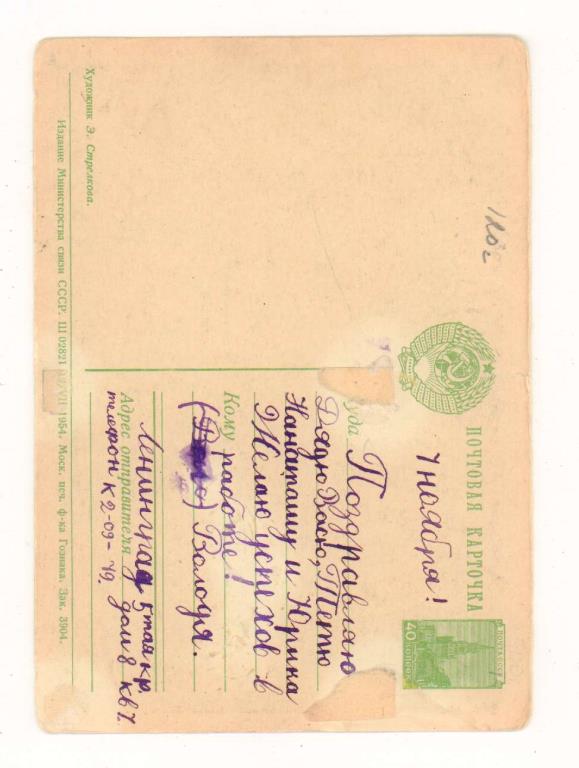 ПОЧТОВАЯ КАРТОЧКА
ПОЧТА СССР
40 КОПЕЕК
7 ноября!
Куда
Поздравляю
Дядю Тетю
Наташу и Юрика
Желаю успехов в
Кому работе!
Володя.
Ленинград 5тая кр.
Адрес отправителя дом 8 кв 7.
телефон К2-09-79.
Художник Э. Стрелкова.
Издание Министерства связи СССР. Ш 02821 VII 1954. Моск. печ. ф-ка Гознака. Зак. 3904.